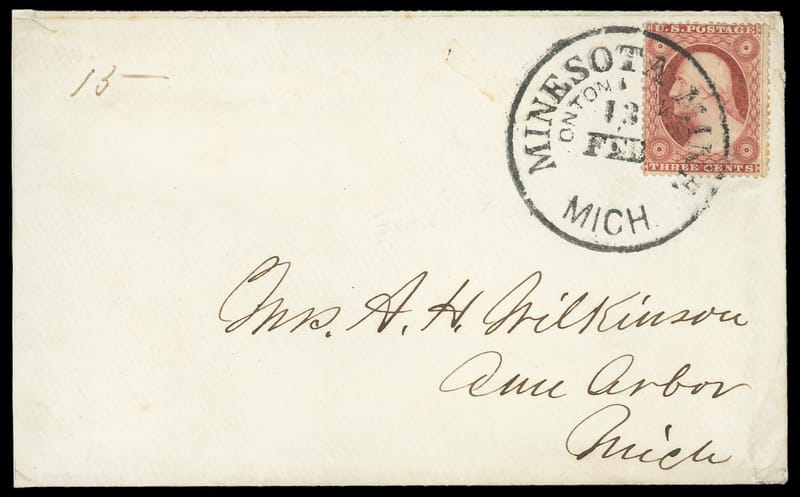 15—
U.S. POSTAGE
THREE CENTS
MINESOTA MINE
ONTON
13
FEB
MICH
Mrs. A. H. Wilkinson
Ann Arbor
Mich